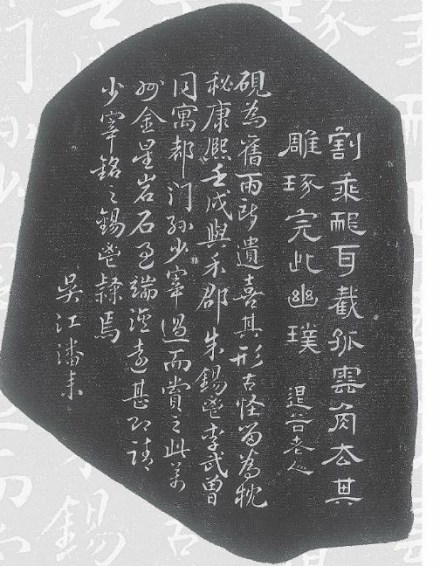 割乖龍耳截孤雲角去其
雕琢完此幽璞 退谷老人
硯為舊雨所遺喜其形古怪留為枕
秘康熙壬戌與禾郡朱錫鬯李武曾
同寓都門孫少宰過而賞之此萊
州金星岩石端溪遠甚即請
少宰銘之錫鬯隸焉
吳江潘耒